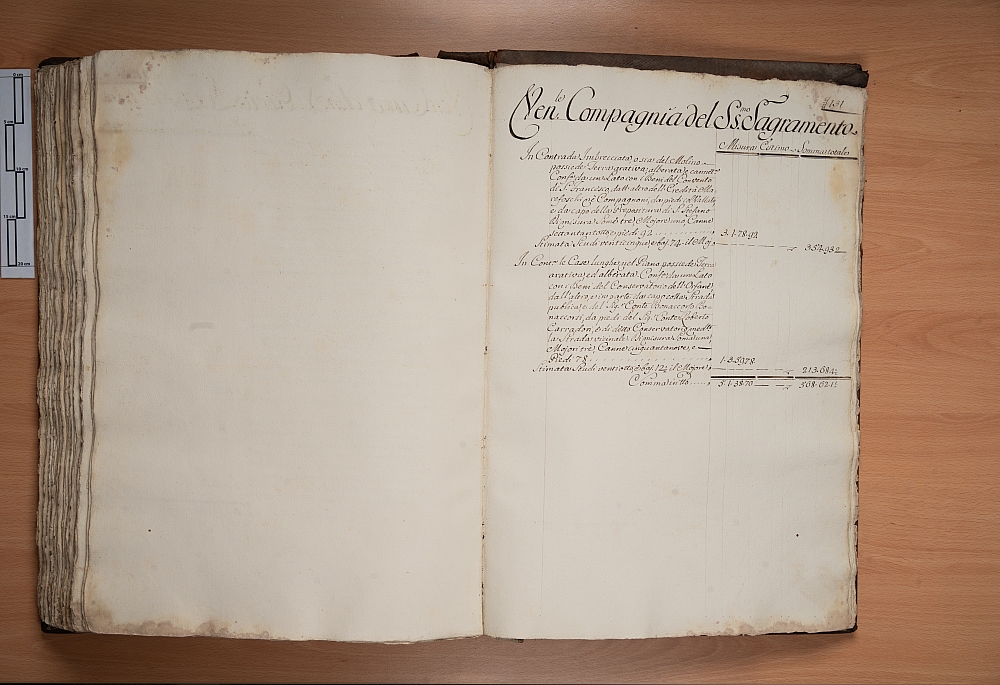 131
Ven.le Compagnia del Ss.mo Sagramento
Misura Estimo Somma totale
In Contrada Imbrecciata, o sia del Molino
possiede Terra arativa, alberata, e cannet.a
Conf.e da un Lato con i Beni del Convento
di S. Francesco, dall'altro dell'Eredità Ma
refoschi, e Compagnoni, da piedi col Vallato
e da capo della Prepositura di S. Stefano
Di misura Some tre, Mojore uno, Canne
settantotto e piedi 92 3.1.78.92
Stimata Scudi venticinque, e baj. 74 il Moj.
In Cont.a le Case lunghe nel Piano possiede Terra
arativa, ed alberata. Conf.e da un Lato
con i Beni del Conservatorio dell'Orfane,
dall'altro, e in parte da capo colla Strada
publica, e del Sig.r Conte Bonaccorso Bo-
naccorsi, da piedi del Sig.r Conte Roberto
Carradori, e di detto Conservatorio med.te
la Strada vicinale. Di misura Soma una,
Mojori tre, Canne cinquantanove, e
Piedi 78 1.3.59.78
Stimata Scudi ventotto, e baj. 12 il Mojore
Somma in tto 5.1.38.70